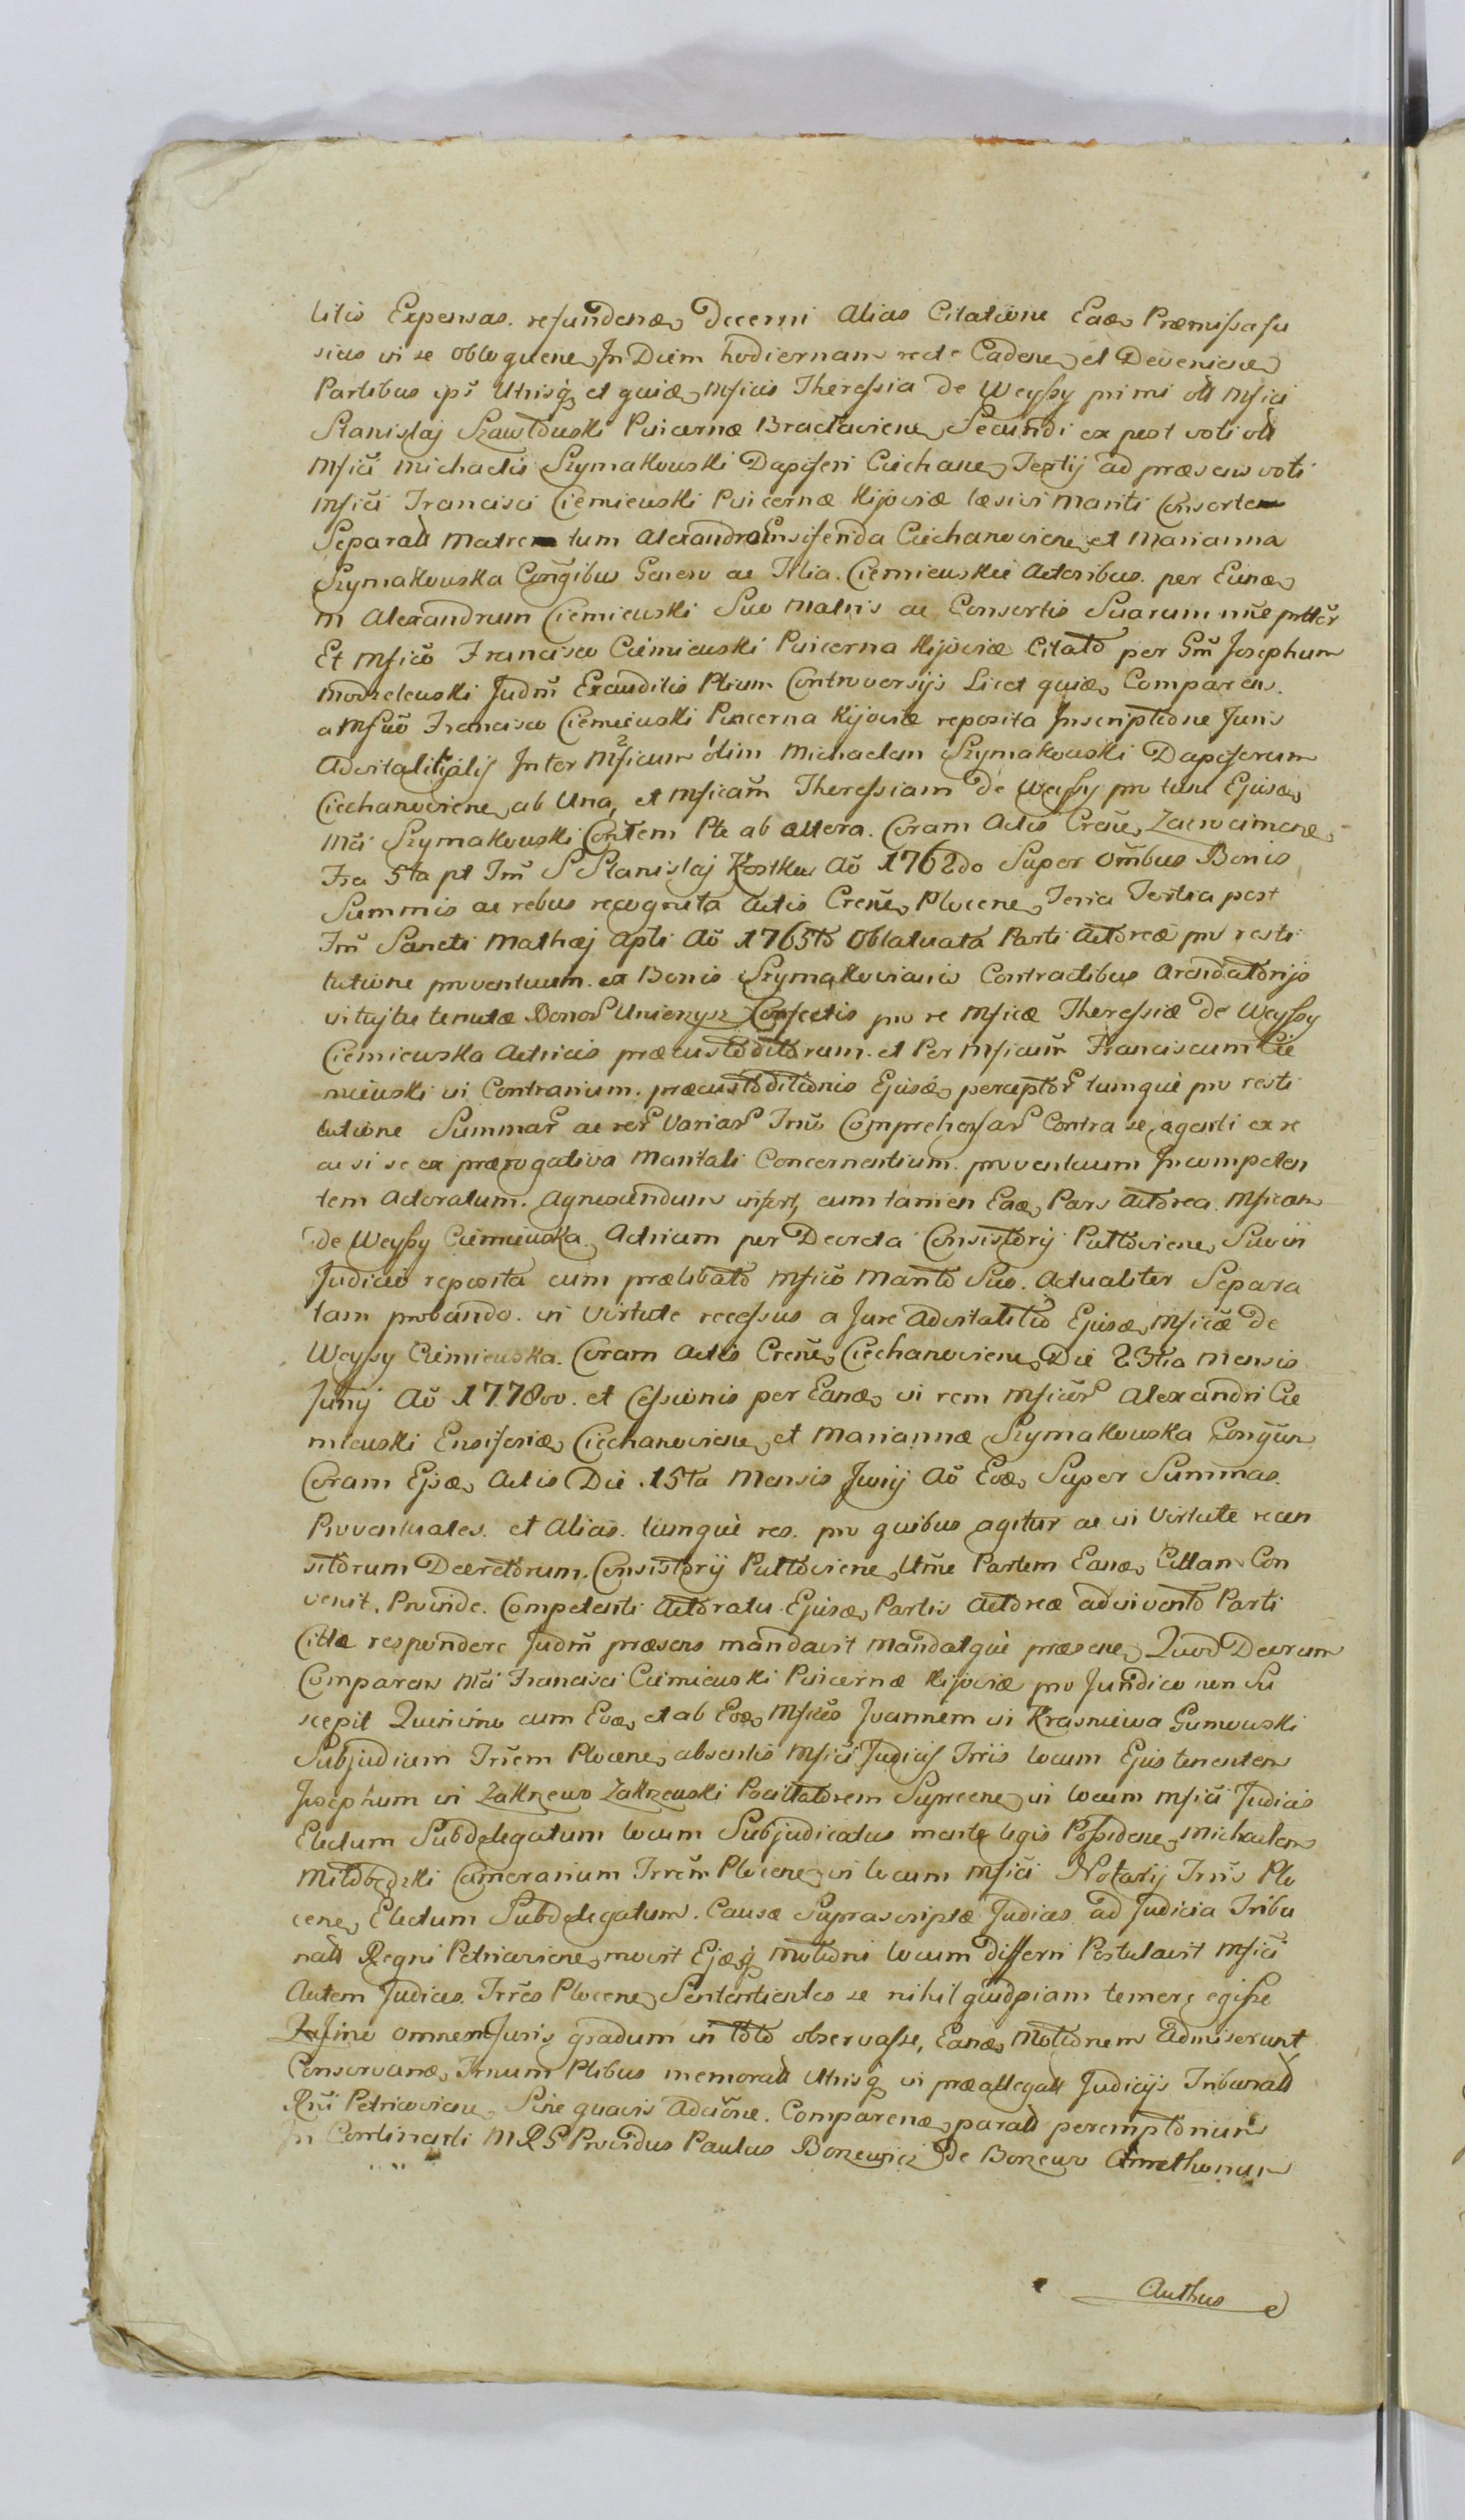 litis Expensas. refundenæ, Decerni Alias Citatione Eaæ, Præmissa fu
sius in se obloquene, In Diem hodiernam recte Cadene, et Deveniene,
Partibus ips Utrisq, et quidæ, Mficis Theressia de Weyssy primi oli Mfici
Stanislaj Szawłowski Pincernæ Braclaviene, Secundi ex post voti oli
Mfici Michaelis Szymakowski Dapiferi Ciechane, Tertij ad præsens voti
Mfici Francisci Ciemiewski Pincernæ Kijoviæ læsivi Mariti Consorte
Separata Matre tum Alexandro Ensiferida Ciechanoviene, et Marianna
Szymakowska Conjgibus Genero ac Filia. Ciemiewskie Actoribus. per Eunæ,
m Alexandrum Ciemiewski Suo Matris ac Consortis Suarum nñe
Et Mfico Francisco Ciemiewski Pincerna Kijoviæ Citato per Gm Josephum
Modzelewski Judm Exauditis Ptium Controversijs Licet quiæ, Comparens.
a Mfico Francisco Ciemiewski Pincerna Kijoviæ reposita Inscriptione Juris
Advitalitialis Inter Mficum olim Michaelem Szymakowski Dapiferum
Ciechanoviene, ab Una, et Mficam Theressiam de Weyssy pro tunc Ejusæ,
Mci Szymakowski Contem Pte ab altera. Coram Actis Crene, Zacrocimene,
Fra 5ta pt Fm S Stanislaj Kostka Ao 1762do Super Ombus Bonis
Summis ac rebus recognita Actis Crene, Plocene, Feria Tertia post
Fm Sancti Mathæj Apli Ao 1765to Oblatuata Parti Actoreæ pro resti
tutione proventuum. ex Bonis Szymakowianis Contractibus Arendatorijs
Bonor Unierzysz Confectis pro re Mficæ Theressiæ de Weyssy
Ciemiewska Actricis præcustoditorum. et Per Mficum Franciscum Cie
miewski in Contrarium. præcustoditionis Ejusæ, perceptor tumque pro resti
tutione Summar ac rer Variar Comprehensar Contra se, agenti ex re
ac si se ex prærogativa Maritali Concernentium. proventuum Incompeten
tem Actoratum. Agnoscendum infert, cum tamen Eaæ, Pars Actorea. Mficam
de Weyssy Ciemiewska. Actricem per Decreta Consistorij Pultoviene, Suo in
Judicio reposita cum prælibato Mfico Marito Suo. Actualiter Separa
tam probando. in Virtute recessus a Jure Advitalitio Ejusæ, Mficæ de
Weyssy Ciemiewska. Coram Actis Crene, Ciechanoviene, Die 23tia Mensis
Junij Ao 1778vo. et Cessionis per Eanæ, in rem Mficor Alexandri Cie
miewski Ensiferiæ, Ciechanoviene, et Mariannæ Szymakowska Conjgum
Coram Ejsæ, Actis Die .15ta Mensis Junij Ao Eoæ, Super Summas.
Proventuales. et Alias. tumque res. pro quibus agitur ac in Virtute recen
sitorum Decretorum. Consistorij Pultoviene, Utme Partem Eanæ, Cittam Con
venit. Proinde. Competenti Actoratu Ejusæ, Partis Actoreæ adinvento Parti
Cittæ respondere Judm præsens mandavit Mandatque præsene, Quod Decrum
Comparens Mci Francisci Ciemiewski Pincernæ Kijoviæ pro Juridico non Su
scepit Quinimo cum Eoæ, et ab Eoæ, Mficos Joannem in Krasniewa Gumowski
Subjudicem Trrem Plocene, absentis Mfici Judicis Trris locum Ejus tenentem
Josephum in Zakrzewo Zakrzewski Pocillatorem Suprcene, in locum Mfici Judicis
Electum Subdelegatum locum Subjudicatus mente legis Possidene, Michaelem
Miłobędzki Camerarium Trrem Plocene, in locum Mfici Notarij Trris Plo
cene, Electum Subdelegatum. Causæ Suprascriptæ Judices ad Judicia Tribu
nalis Regni Petricoviene, movit Ejæq, Motioni locum differri Postulavit Mfici
Autem Judices. Trres Plocene, Sententientes se nihil quidpiam temere egisse
omnem Juris gradum in toto observasse, Eanæ, Motionem Admiserunt
Conservanæ, Trnum Ptibus memorat Utrisq in præallegatt Judicijs Tribunali
Rni Petricoviene, Sine quavis Adcitone. Comparenæ, parali peremptorium
In Continenti M R S Providus Paulus Borzewicz de Borzewo Cmethonum
Authus